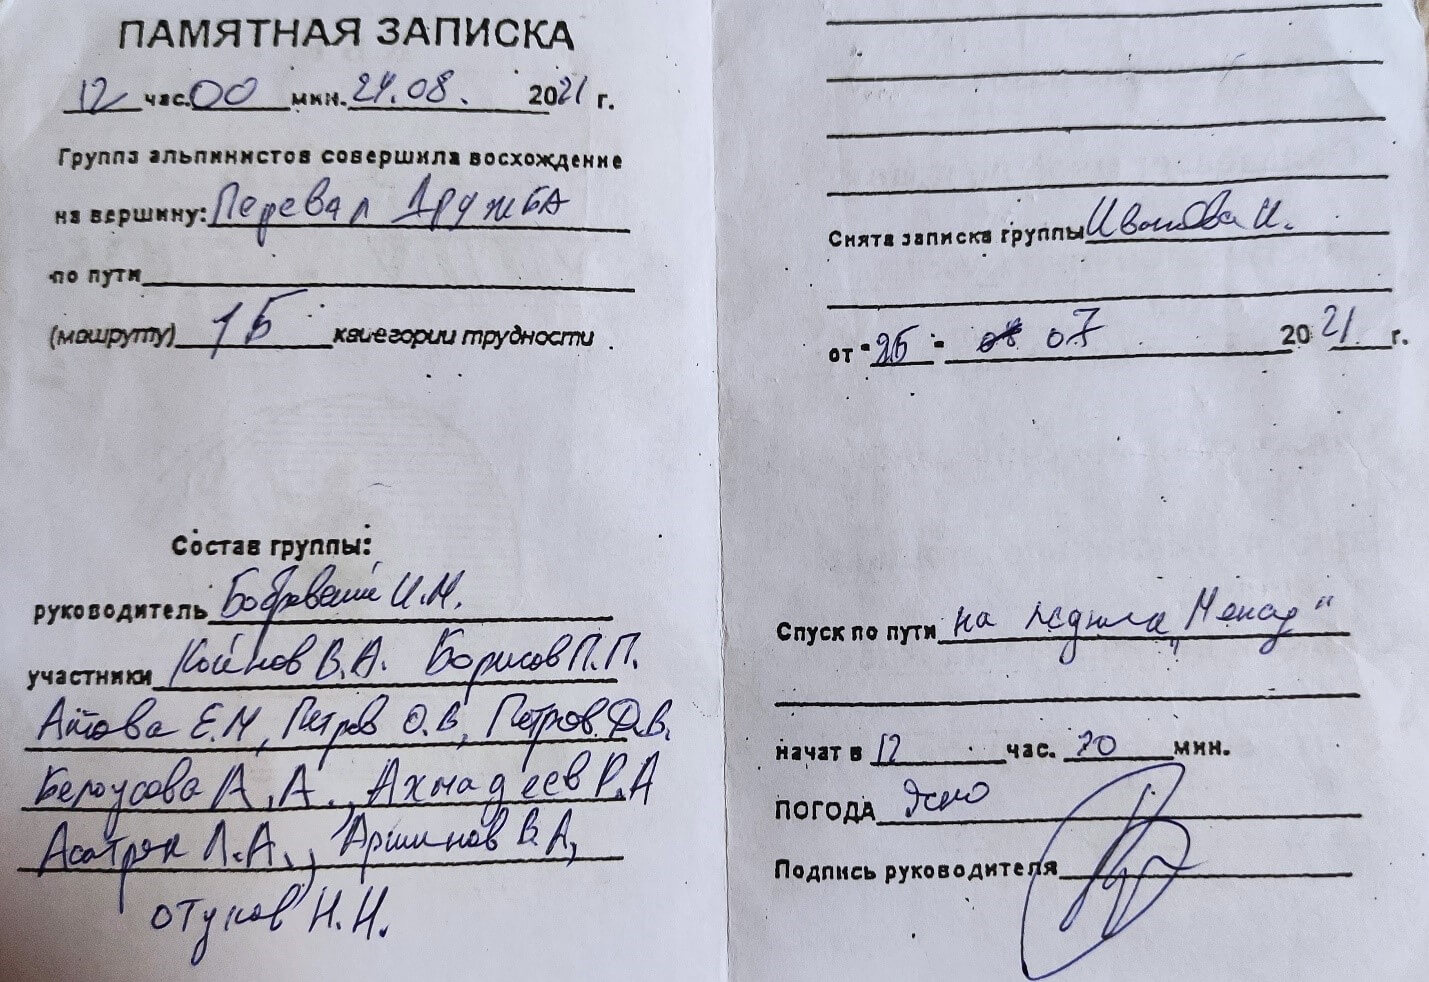 ПАМЯТНАЯ ЗАПИСКА
12 час. 00 мин. 24.08. 2021 г.
Группа альпинистов совершила восхождение
на вершину: Перевал Дружба
по пути
(маршруту) 1Б категории трудности
Состав группы:
руководитель И.М.
участники В.А. Борисов П.П.
Е.М, Петров О.В, Петров Д.В.
Белоусова А.А., Ахмадеев Р.А
Асатрян Л.А., Аршинов В.А,
Н.Н.
Снята записка группы Иванова И.
от "25" 07 2021 г.
Спуск по пути на
начат в 12 час. 20 мин.
ПОГОДА Ясно
Подпись руководителя